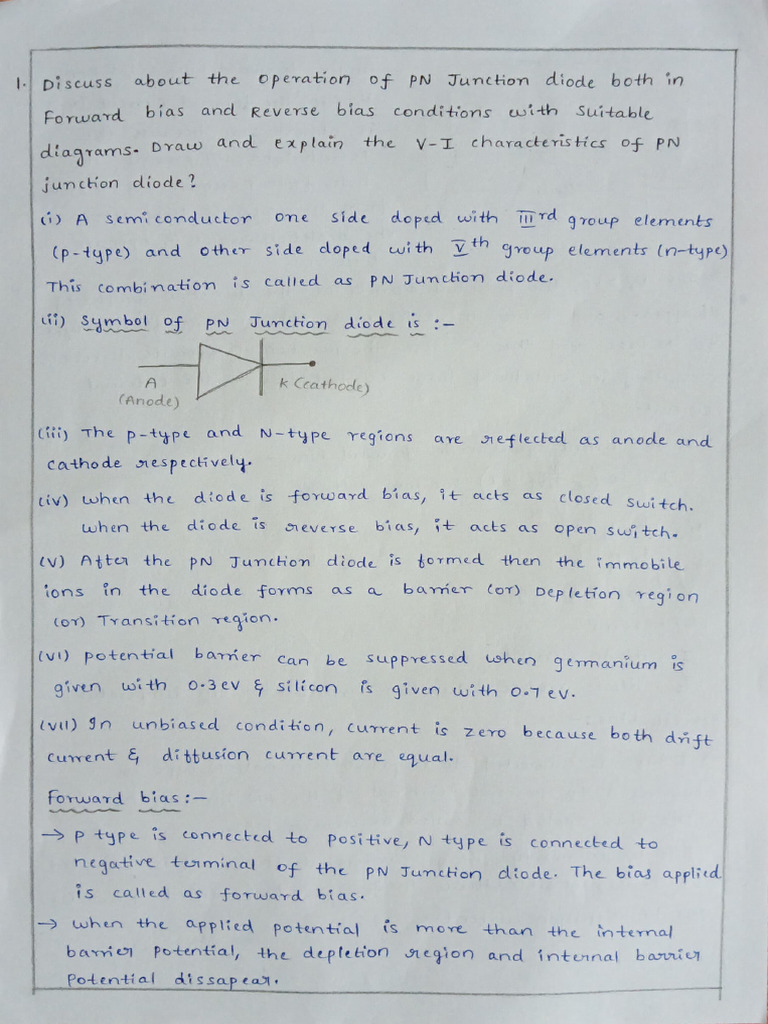 1. Discuss about the operation of PN Junction diode both in
Forward bias and Reverse bias conditions with suitable
diagrams. Draw and explain the V-I characteristics of PN
junction diode?
(i) A semiconductor one side doped with IIIrd group elements
(p-type) and other side doped with Vth group elements (n-type)
This combination is called as PN Junction diode.
(ii) Symbol of PN Junction diode is :-
A
(Anode)
K (cathode)
(iii) The p-type and N-type regions are reflected as anode and
cathode respectively.
(iv) when the diode is forward bias, it acts as closed switch.
when the diode is reverse bias, it acts as open switch.
(v) After the PN Junction diode is formed then the immobile
ions in the diode forms as a barrier (or) Depletion region
(or) Transition region.
(vi) potential barrier can be suppressed when germanium is
given with 0.3 ev & silicon is given with 0.7 ev.
(vii) In unbiased condition, current is zero because both drift
current & diffusion current are equal.
Forward bias:-
→ p type is connected to positive, N type is connected to
negative terminal of the PN Junction diode. The bias applied
is called as forward bias.
→ when the applied potential is more than the internal
barrier potential, the depletion region and internal barrier
potential dissapear.